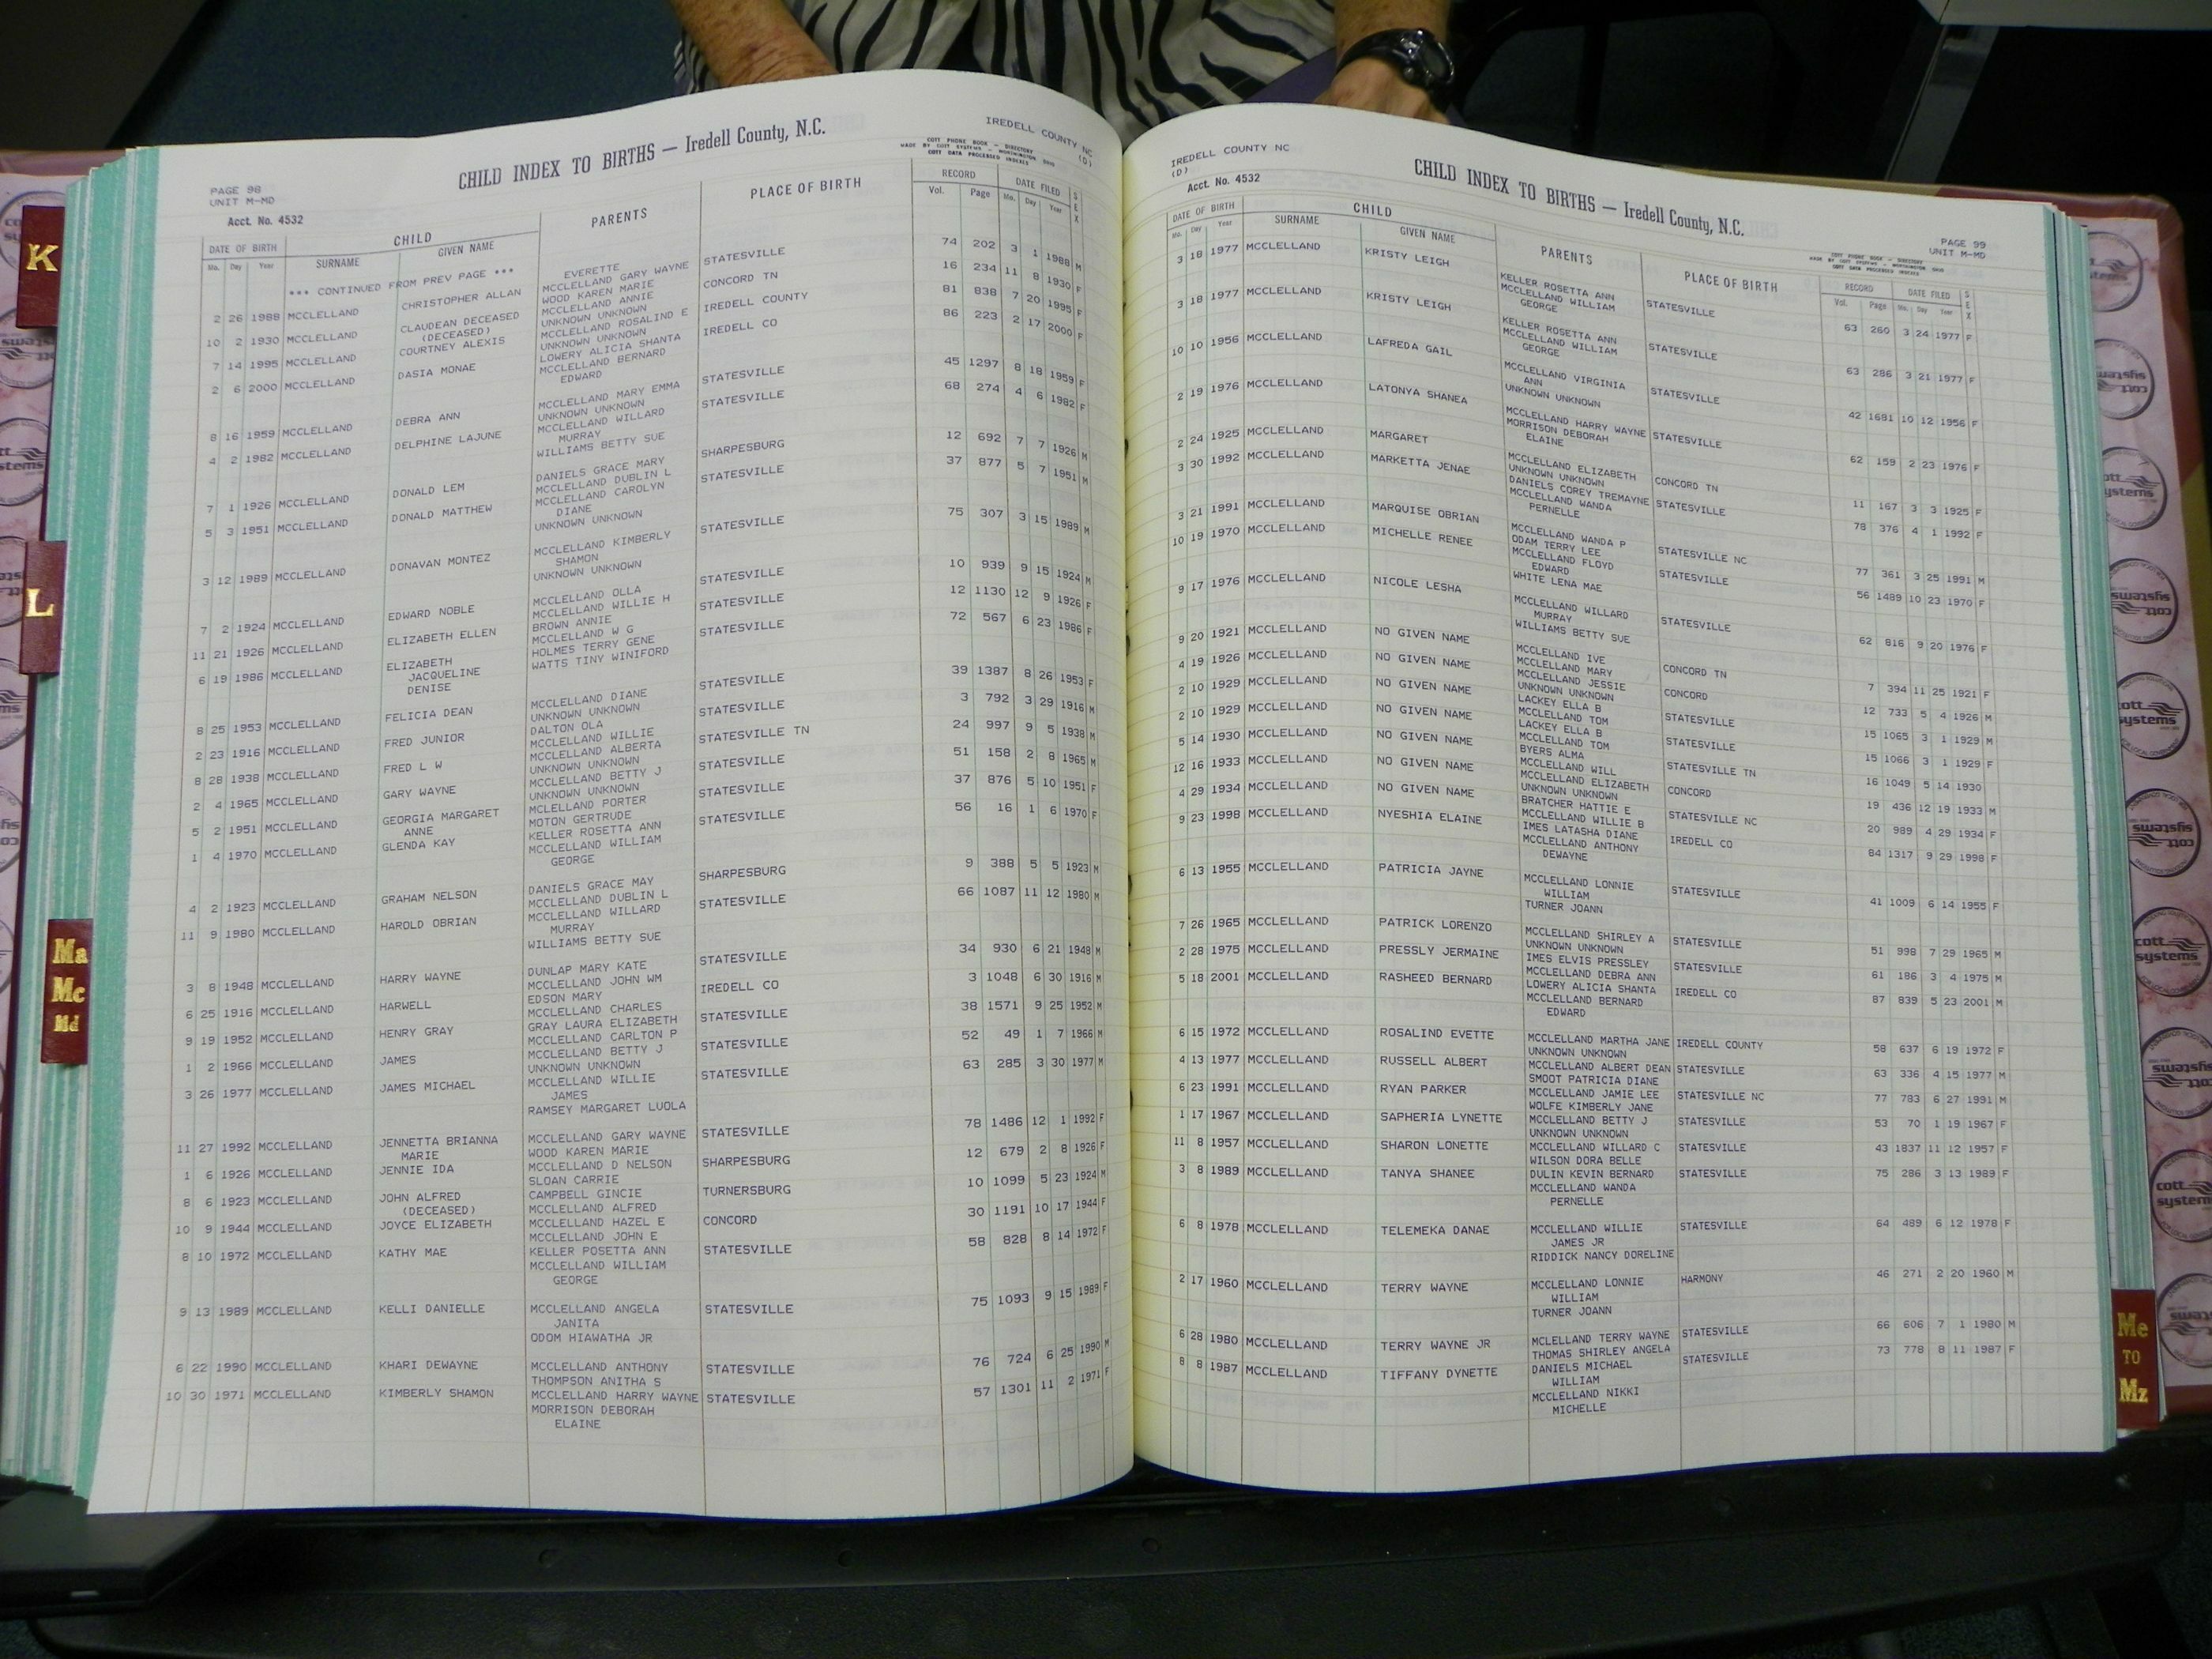 PAGE 98
UNIT M-MD
Acct. No. 4532
CHILD INDEX TO BIRTHS — Iredell County, N.C.
IREDELL COUNTY NC
(D)
COTT PHONE BOOK - DIRECTORY
MADE BY COTT SYSTEMS - WORTHINGTON OHIO
COTT DATA PROCESSED INDEXES
DATE OF BIRTH CHILD PARENTS PLACE OF BIRTH RECORD DATE FILED SEX
Mo. Day Year SURNAME GIVEN NAME Vol. Page Mo. Day Year
*** CONTINUED FROM PREV PAGE ***
EVERETTE
2 26 1988 MCCLELLAND CHRISTOPHER ALLAN MCCLELLAND GARY WAYNE STATESVILLE 74 202 3 1 1988 M
WOOD KAREN MARIE
10 2 1930 MCCLELLAND CLAUDEAN DECEASED MCCLELLAND ANNIE CONCORD TN 16 234 11 8 1930 F
(DECEASED) UNKNOWN UNKNOWN
7 14 1995 MCCLELLAND COURTNEY ALEXIS MCCLELLAND ROSALIND E IREDELL COUNTY 81 838 7 20 1995 F
UNKNOWN UNKNOWN
2 6 2000 MCCLELLAND DASIA MONAE LOWERY ALICIA SHANTA IREDELL CO 86 223 2 17 2000 F
MCCLELLAND BERNARD
EDWARD
8 16 1959 MCCLELLAND DEBRA ANN MCCLELLAND MARY EMMA STATESVILLE 45 1297 8 18 1959 F
UNKNOWN UNKNOWN
4 2 1982 MCCLELLAND DELPHINE LAJUNE MCCLELLAND WILLARD STATESVILLE 68 274 4 6 1982 F
MURRAY
WILLIAMS BETTY SUE
7 1 1926 MCCLELLAND DONALD LEM DANIELS GRACE MARY SHARPESBURG 12 692 7 7 1926 M
MCCLELLAND DUBLIN L
5 3 1951 MCCLELLAND DONALD MATTHEW MCCLELLAND CAROLYN STATESVILLE 37 877 5 7 1951 M
DIANE
UNKNOWN UNKNOWN
3 12 1989 MCCLELLAND DONAVAN MONTEZ MCCLELLAND KIMBERLY STATESVILLE 75 307 3 15 1989 M
SHAMON
UNKNOWN UNKNOWN
7 2 1924 MCCLELLAND EDWARD NOBLE MCCLELLAND OLLA STATESVILLE 10 939 9 15 1924 M
MCCLELLAND WILLIE H
11 21 1926 MCCLELLAND ELIZABETH ELLEN BROWN ANNIE STATESVILLE 12 1130 12 9 1926 F
MCCLELLAND W G
6 19 1986 MCCLELLAND ELIZABETH HOLMES TERRY GENE STATESVILLE 72 567 6 23 1986 F
JACQUELINE WATTS TINY WINIFORD
DENISE
8 25 1953 MCCLELLAND FELICIA DEAN MCCLELLAND DIANE STATESVILLE 39 1387 8 26 1953 F
UNKNOWN UNKNOWN
2 23 1916 MCCLELLAND FRED JUNIOR DALTON OLA STATESVILLE 3 792 3 29 1916 M
MCCLELLAND WILLIE
8 28 1938 MCCLELLAND FRED L W MCCLELLAND ALBERTA STATESVILLE TN 24 997 9 5 1938 M
UNKNOWN UNKNOWN
2 4 1965 MCCLELLAND GARY WAYNE MCCLELLAND BETTY J STATESVILLE 51 158 2 8 1965 M
UNKNOWN UNKNOWN
5 2 1951 MCCLELLAND GEORGIA MARGARET MCLELLAND PORTER STATESVILLE 37 876 5 10 1951 F
ANNE MOTON GERTRUDE
1 4 1970 MCCLELLAND GLENDA KAY KELLER ROSETTA ANN STATESVILLE 56 16 1 6 1970 F
MCCLELLAND WILLIAM
GEORGE
4 2 1923 MCCLELLAND GRAHAM NELSON DANIELS GRACE MAY SHARPESBURG 9 388 5 5 1923 M
MCCLELLAND DUBLIN L
11 9 1980 MCCLELLAND HAROLD OBRIAN MCCLELLAND WILLARD STATESVILLE 66 1087 11 12 1980 M
MURRAY
WILLIAMS BETTY SUE
3 8 1948 MCCLELLAND HARRY WAYNE DUNLAP MARY KATE STATESVILLE 34 930 6 21 1948 M
MCCLELLAND JOHN WM
6 25 1916 MCCLELLAND HARWELL EDSON MARY IREDELL CO 3 1048 6 30 1916 M
MCCLELLAND CHARLES
9 19 1952 MCCLELLAND HENRY GRAY GRAY LAURA ELIZABETH STATESVILLE 38 1571 9 25 1952 M
MCCLELLAND CARLTON P
1 2 1966 MCCLELLAND JAMES MCCLELLAND BETTY J STATESVILLE 52 49 1 7 1966 M
UNKNOWN UNKNOWN
3 26 1977 MCCLELLAND JAMES MICHAEL MCCLELLAND WILLIE STATESVILLE 63 285 3 30 1977 M
JAMES
RAMSEY MARGARET LUOLA
11 27 1992 MCCLELLAND JENNETTA BRIANNA MCCLELLAND GARY WAYNE STATESVILLE 78 1486 12 1 1992 F
MARIE WOOD KAREN MARIE
1 6 1926 MCCLELLAND JENNIE IDA MCCLELLAND D NELSON SHARPESBURG 12 679 2 8 1926 F
SLOAN CARRIE
8 6 1923 MCCLELLAND JOHN ALFRED CAMPBELL GINCIE TURNERSBURG 10 1099 5 23 1924 M
(DECEASED) MCCLELLAND ALFRED
10 9 1944 MCCLELLAND JOYCE ELIZABETH MCCLELLAND HAZEL E CONCORD 30 1191 10 17 1944 F
MCCLELLAND JOHN E
8 10 1972 MCCLELLAND KATHY MAE KELLER POSETTA ANN STATESVILLE 58 828 8 14 1972 F
MCCLELLAND WILLIAM
GEORGE
9 13 1989 MCCLELLAND KELLI DANIELLE MCCLELLAND ANGELA STATESVILLE 75 1093 9 15 1989 F
JANITA
ODOM HIAWATHA JR
6 22 1990 MCCLELLAND KHARI DEWAYNE MCCLELLAND ANTHONY STATESVILLE 76 724 6 25 1990 M
THOMPSON ANITHA S
10 30 1971 MCCLELLAND KIMBERLY SHAMON MCCLELLAND HARRY WAYNE STATESVILLE 57 1301 11 2 1971 F
MORRISON DEBORAH
ELAINE
IREDELL COUNTY NC
(D)
Acct. No. 4532
CHILD INDEX TO BIRTHS — Iredell County, N.C.
PAGE 99
UNIT M-MD
COTT PHONE BOOK - DIRECTORY
MADE BY COTT SYSTEMS - WORTHINGTON OHIO
COTT DATA PROCESSED INDEXES
DATE OF BIRTH CHILD PARENTS PLACE OF BIRTH RECORD DATE FILED SEX
Mo. Day Year SURNAME GIVEN NAME Vol. Page Mo. Day Year
3 18 1977 MCCLELLAND KRISTY LEIGH KELLER ROSETTA ANN STATESVILLE 63 260 3 24 1977 F
MCCLELLAND WILLIAM
GEORGE
3 18 1977 MCCLELLAND KRISTY LEIGH KELLER ROSETTA ANN STATESVILLE 63 286 3 21 1977 F
MCCLELLAND WILLIAM
GEORGE
10 10 1956 MCCLELLAND LAFREDA GAIL MCCLELLAND VIRGINIA STATESVILLE 42 1681 10 12 1956 F
ANN
UNKNOWN UNKNOWN
2 19 1976 MCCLELLAND LATONYA SHANEA MCCLELLAND HARRY WAYNE STATESVILLE 62 159 2 23 1976 F
MORRISON DEBORAH
ELAINE
2 24 1925 MCCLELLAND MARGARET MCCLELLAND ELIZABETH CONCORD TN 11 167 3 3 1925 F
UNKNOWN UNKNOWN
3 30 1992 MCCLELLAND MARKETTA JENAE DANIELS COREY TREMAYNE STATESVILLE 78 376 4 1 1992 F
MCCLELLAND WANDA
PERNELLE
3 21 1991 MCCLELLAND MARQUISE OBRIAN MCCLELLAND WANDA P STATESVILLE NC 77 361 3 25 1991 M
ODAM TERRY LEE
10 19 1970 MCCLELLAND MICHELLE RENEE MCCLELLAND FLOYD STATESVILLE 56 1489 10 23 1970 F
EDWARD
WHITE LENA MAE
9 17 1976 MCCLELLAND NICOLE LESHA MCCLELLAND WILLARD STATESVILLE 62 816 9 20 1976 F
MURRAY
WILLIAMS BETTY SUE
9 20 1921 MCCLELLAND NO GIVEN NAME MCCLELLAND IVE CONCORD TN 7 394 11 25 1921 F
MCCLELLAND MARY
4 19 1926 MCCLELLAND NO GIVEN NAME MCCLELLAND JESSIE CONCORD 12 733 5 4 1926 M
UNKNOWN UNKNOWN
2 10 1929 MCCLELLAND NO GIVEN NAME LACKEY ELLA B STATESVILLE 15 1065 3 1 1929 M
MCCLELLAND TOM
2 10 1929 MCCLELLAND NO GIVEN NAME LACKEY ELLA B STATESVILLE 15 1066 3 1 1929 F
MCCLELLAND TOM
5 14 1930 MCCLELLAND NO GIVEN NAME BYERS ALMA STATESVILLE TN 16 1049 5 14 1930
MCCLELLAND WILL
12 16 1933 MCCLELLAND NO GIVEN NAME MCCLELLAND ELIZABETH CONCORD 19 436 12 19 1933 M
UNKNOWN UNKNOWN
4 29 1934 MCCLELLAND NO GIVEN NAME BRATCHER HATTIE E STATESVILLE NC 20 989 4 29 1934 F
MCCLELLAND WILLIE B
9 23 1998 MCCLELLAND NYESHIA ELAINE IMES LATASHA DIANE IREDELL CO 84 1317 9 29 1998 F
MCCLELLAND ANTHONY
DEWAYNE
6 13 1955 MCCLELLAND PATRICIA JAYNE MCCLELLAND LONNIE STATESVILLE 41 1009 6 14 1955 F
WILLIAM
TURNER JOANN
7 26 1965 MCCLELLAND PATRICK LORENZO MCCLELLAND SHIRLEY A STATESVILLE 51 998 7 29 1965 M
UNKNOWN UNKNOWN
2 28 1975 MCCLELLAND PRESSLY JERMAINE IMES ELVIS PRESSLEY STATESVILLE 61 186 3 4 1975 M
MCCLELLAND DEBRA ANN
5 18 2001 MCCLELLAND RASHEED BERNARD LOWERY ALICIA SHANTA IREDELL CO 87 839 5 23 2001 M
MCCLELLAND BERNARD
EDWARD
6 15 1972 MCCLELLAND ROSALIND EVETTE MCCLELLAND MARTHA JANE IREDELL COUNTY 58 637 6 19 1972 F
UNKNOWN UNKNOWN
4 13 1977 MCCLELLAND RUSSELL ALBERT MCCLELLAND ALBERT DEAN STATESVILLE 63 336 4 15 1977 M
SMOOT PATRICIA DIANE
6 23 1991 MCCLELLAND RYAN PARKER MCCLELLAND JAMIE LEE STATESVILLE NC 77 783 6 27 1991 M
WOLFE KIMBERLY JANE
1 17 1967 MCCLELLAND SAPHERIA LYNETTE MCCLELLAND BETTY J STATESVILLE 53 70 1 19 1967 F
UNKNOWN UNKNOWN
11 8 1957 MCCLELLAND SHARON LONETTE MCCLELLAND WILLARD C STATESVILLE 43 1837 11 12 1957 F
WILSON DORA BELLE
3 8 1989 MCCLELLAND TANYA SHANEE DULIN KEVIN BERNARD STATESVILLE 75 286 3 13 1989 F
MCCLELLAND WANDA
PERNELLE
6 8 1978 MCCLELLAND TELEMEKA DANAE MCCLELLAND WILLIE STATESVILLE 64 489 6 12 1978 F
JAMES JR
RIDDICK NANCY DORELINE
2 17 1960 MCCLELLAND TERRY WAYNE MCCLELLAND LONNIE HARMONY 46 271 2 20 1960 M
WILLIAM
TURNER JOANN
6 28 1980 MCCLELLAND TERRY WAYNE JR MCLELLAND TERRY WAYNE STATESVILLE 66 606 7 1 1980 M
THOMAS SHIRLEY ANGELA
8 8 1987 MCCLELLAND TIFFANY DYNETTE DANIELS MICHAEL STATESVILLE 73 778 8 11 1987 F
WILLIAM
MCCLELLAND NIKKI
MICHELLE
K
L
Ma
Mc
Md
Me
TO
Mz
cott
systems